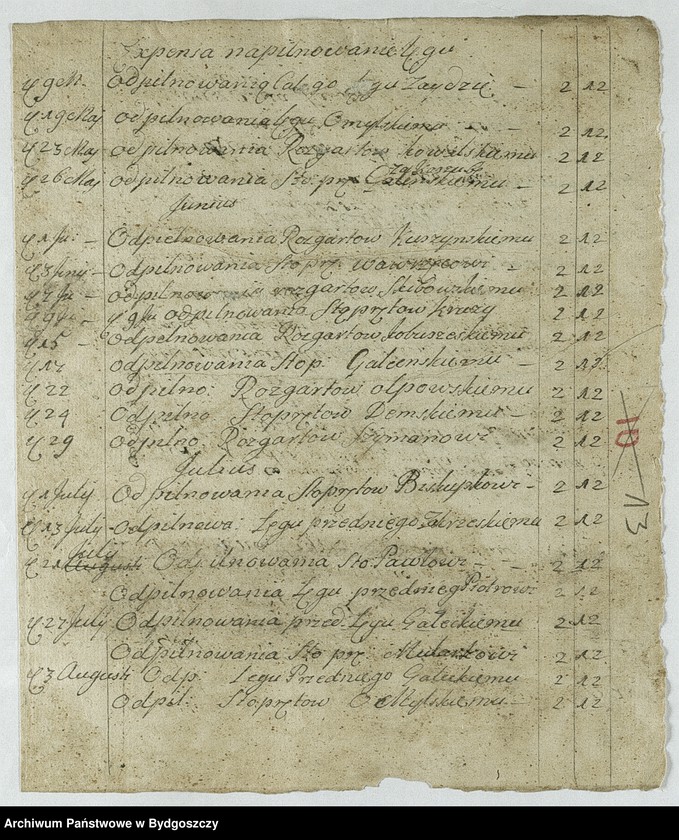 Expensa na pilnowanie Łęgu
Odpilnowania Całego Łęgu 2 12
d 19 Maj odpilnowania Łęgu Omylskiemu 2 12
d 23 Maj odpilnowania Rozgartow Kowalskiemu 2 12
d 26 Maj odpilnowania Sto prę Galenskiemu 2 12
Junius
d 1 Ju: Odpielnowania Rozgartow Kuszynskiemu 2 12
d 3 Juny Odpilnowania Stoprę: Wawrzecowi 2 12
odpilnowania rozgartow 2 12
d 9 Ju odpilnowania Stoprętow Kruzy 2 12
d 15 Odpelnowania Rozgartow 2 12
d 17 odpilnowania Stop: Galeenskiemu 2 12
d 22 odpilno: Rozgartow olpowskiemu 2 12
d 24 Odpelno Stoprętow Demskiemu 2 12
d 29 odpilno: Rozgartow Szymanowi 2 12
Julius
d 1 July Odpilnowania Stoprętow Biskupkowi 2 12
d 13 July Odpilnowa: Łęgu przedniego 2 12
July
d 21 Augusti Odpilnowania Sto Pawłowi 2 12
Odpilnowania Łęgu przednieg Piotrowi 2 12
d 27 July Odpilnowania przed: Łęgu Galeckiemu 2 12
Odpilnowania Sto prę: Mularzowi 2 12
d 3 Augusti Odp: Łegu Przedniego Galeckiemu 2 12
Odpil: Stoprętow OMylskiemu 2 12
10
13
Archiwum Państwowe w Bydgoszczy